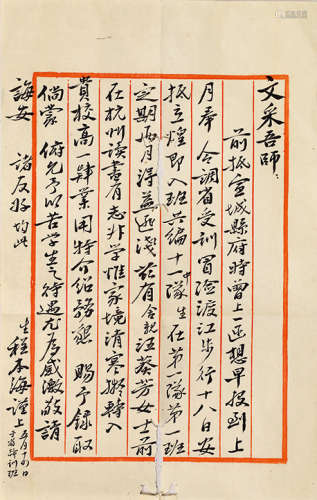 文采吾師：
前抵宣城縣府時曾上一函想早投到上
月奉 令調省受訓冒險渡江步行十八日安
抵立煌即入班共編十一中隊生在第一隊第一班
定期兩月得益匪淺茲有舍親汪葵芳女士前
在杭州讀書有志升学惟家境清寒擬轉入
貴校高一肄業用特介紹務懇 賜予録取
倘蒙 俯允予以苦学生之待遇尤为感激敬請
誨安 諸友好均此
生程本海謹上 五月十四日
訓班